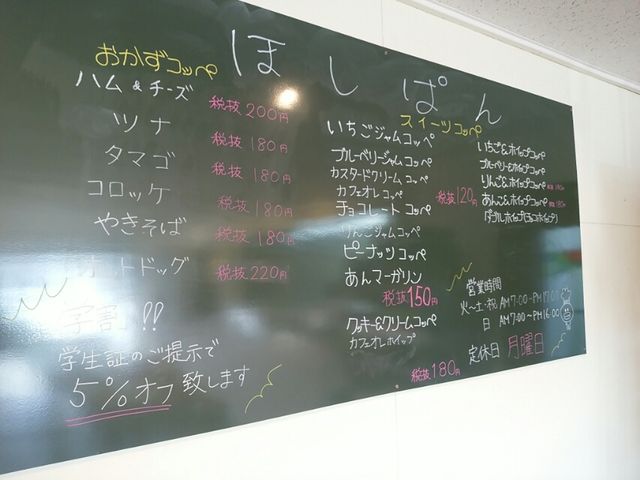 ほしぱん
おかずコッペ
ハム&チーズ 税抜200円
ツナ 税抜180円
タマゴ 税抜180円
コロッケ 税抜180円
やきそば 税抜180円
ホットドッグ 税抜220円
学割!!
学生証のご提示で
5%オフ致します
スイーツコッペ
いちごジャムコッペ
ブルーベリージャムコッペ
カスタードクリームコッペ
カフェオレコッペ
税抜120円
チョコレートコッペ
りんごジャムコッペ
ピーナッツコッペ
あんマーガリン
税抜150円
クッキー&クリームコッペ
カフェオレホイップ
税抜180円
いちご&ホイップコッペ
ブルーベリー&ホイップコッペ
りんご&ホイップコッペ
あんこ&ホイップコッペ
営業時間
火〜土・祝 AM7:00〜PM17:00
日 AM7:00〜PM16:00
定休日 月曜日